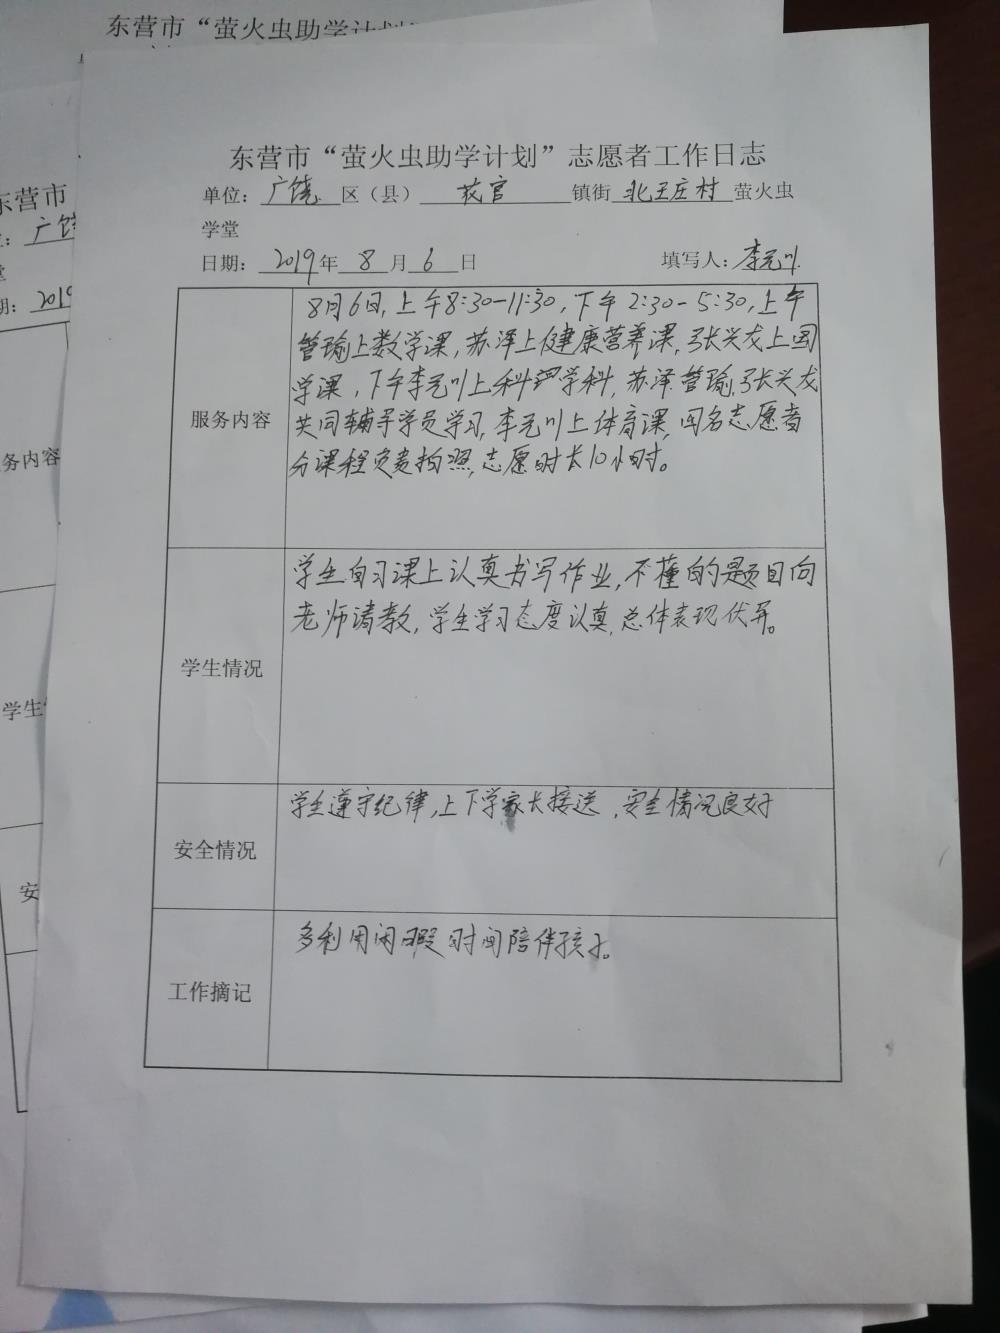 东营市“萤火虫助学计划
东营市
广饶
2019
务内容
学生
安
东营市“萤火虫助学计划”志愿者工作日志
单位：广饶区（县）花官镇街北王庄村萤火虫
学堂
日期：2019年8月6日 填写人：李元川
8月6日,上午8:30-11:30,下午2:30-5:30,上午
管瑜上数学课,苏泽上健康营养课,张兴龙上国
学课,下午李元川上科理学科,苏泽管瑜张兴龙
服务内容
共同辅导学员学习,李元川上体育课,四名志愿者
分课程负责拍照,志愿时长10小时。
学生自习课上认真书写作业,不懂的题目向
老师请教,学生学习态度认真,总体表现优异。
学生情况
学生遵守纪律,上下学家长接送,安全情况良好
安全情况
多利用闲暇时间陪伴孩子。
工作摘记